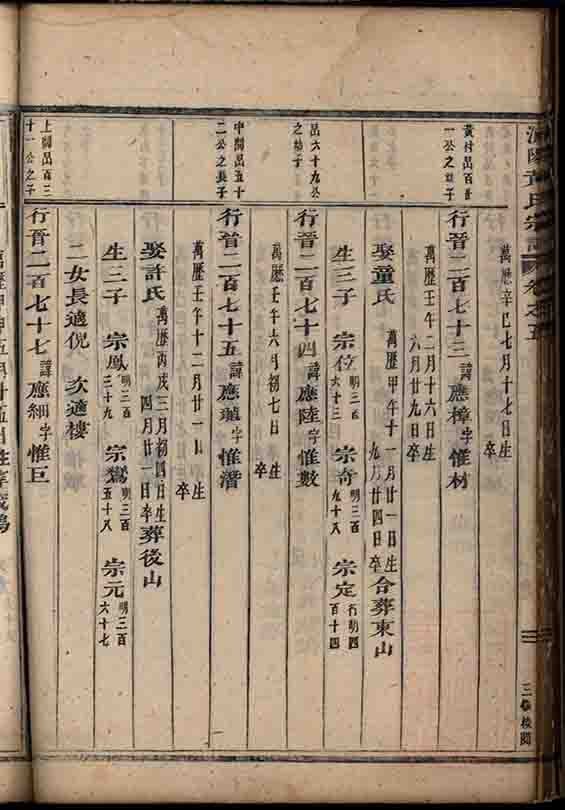 黃氏宗
卷之五
三餘校閱
萬歷辛巳七月十七日生
卒
黃村出百
一公之幼子
行晉二百七十三 諱應樟字惟材
萬歷壬午二月十六日生
六月廿九日卒
娶童氏 萬歷甲午十一月廿一日生 九月廿四日卒 合葬東山
生三子 宗位 明三百六十三 宗奇 明三百九十八 宗定 行明四百十四
出六十九公
之幼子
行晉二百七十四 諱應陸字惟數
萬歷壬午六月初七日生
卒
中關出五十
二公之長子
行晉二百七十五 諱應 字惟潛
萬歷壬午十二月廿一日生
卒
娶許氏 萬歷丙戌三月初四日生 四月廿一日卒 葬後山
生三子 宗鳳 明三百三十九 宗鸞 明三百五十八 宗元 明三百六十七
二女長適倪 次適樓
上關出百三
十一公之子
行晉二百七十七 諱應細字惟巨
萬歷甲申五月廿五日生卒